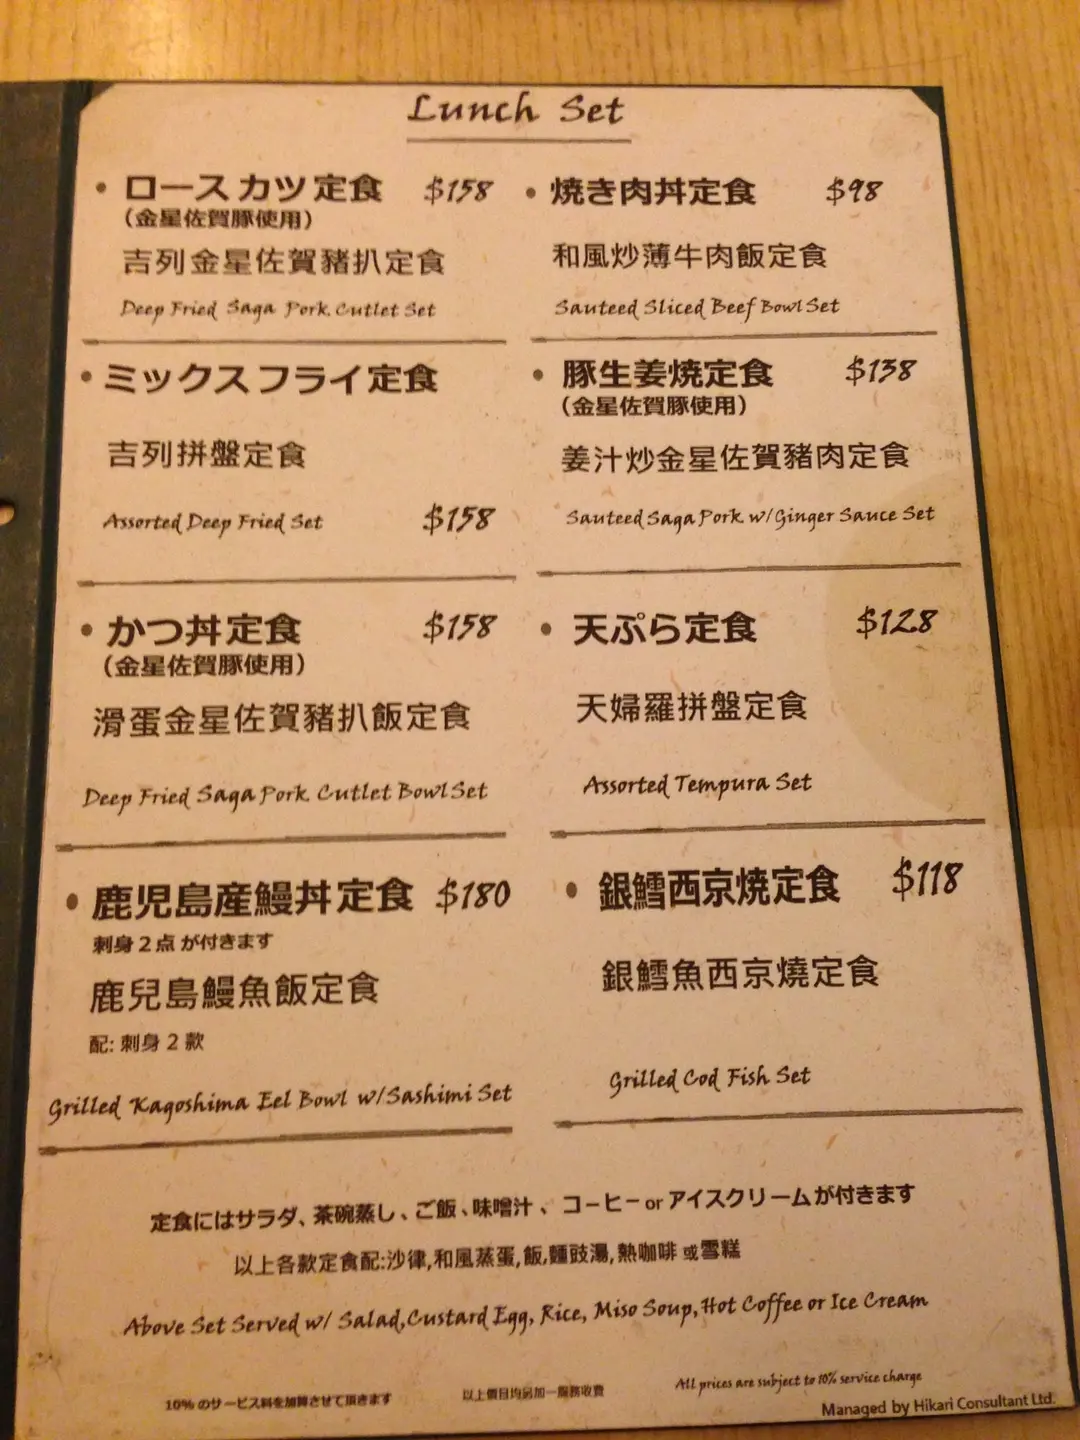 Lunch Set
• ロースカツ定食 $158
(金星佐賀豚使用)
吉列金星佐賀豬扒定食
Deep Fried Saga Pork Cutlet Set
• 焼き肉丼定食 $98
和風炒薄牛肉飯定食
Sauteed Sliced Beef Bowl Set
• ミックスフライ定食
吉列拼盤定食
Assorted Deep Fried Set $158
• 豚生姜焼定食 $138
(金星佐賀豚使用)
姜汁炒金星佐賀豬肉定食
Sauteed Saga Pork w/Ginger Sauce Set
• かつ丼定食 $158
(金星佐賀豚使用)
滑蛋金星佐賀豬扒飯定食
Deep Fried Saga Pork Cutlet Bowl Set
• 天ぷら定食 $128
天婦羅拼盤定食
Assorted Tempura Set
• 鹿児島産鰻丼定食 $180
刺身2点が付きます
鹿兒島鰻魚飯定食
配: 刺身2款
Grilled Kagoshima Eel Bowl w/Sashimi Set
• 銀鱈西京焼定食 $118
銀鱈魚西京燒定食
Grilled Cod Fish Set
定食にはサラダ、茶碗蒸し、ご飯、味噌汁、コーヒー or アイスクリームが付きます
以上各款定食配:沙律,和風蒸蛋,飯,麵豉湯,熱咖啡 或雪糕
Above Set Served w/ Salad,Custard Egg, Rice, Miso Soup,Hot Coffee or Ice Cream
10% のサービス料を加算させて頂きます
以上價目均另加一服務收費
All prices are subject to 10% service charge
Managed by Hikari Consultant Ltd.